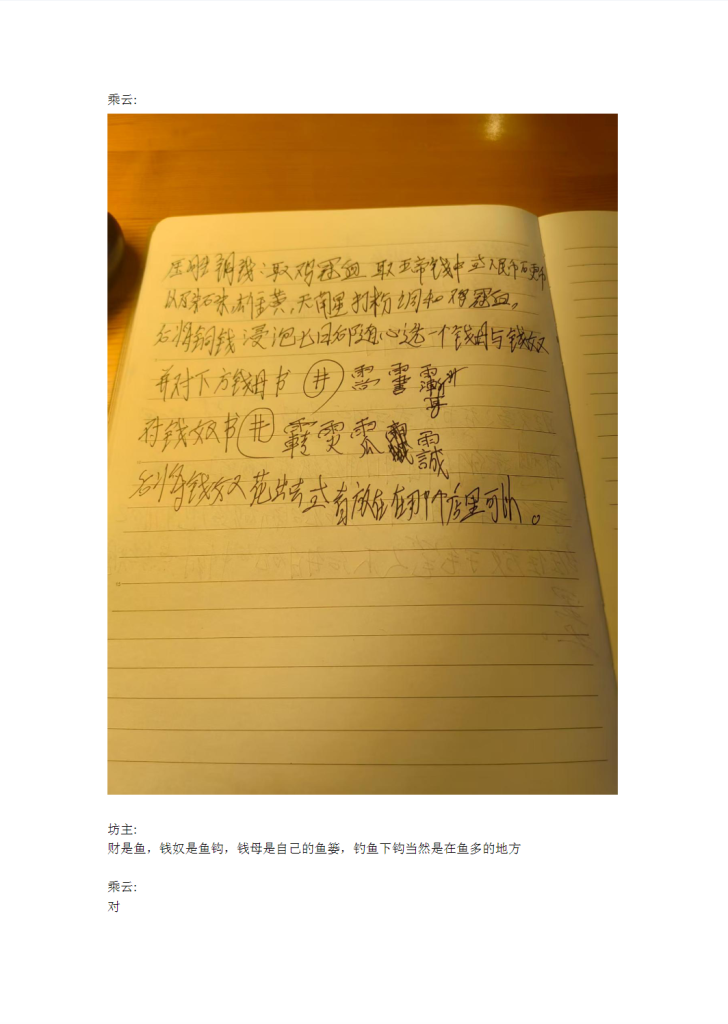 乘云:
压胜铜钱:取鸡冠血 取五帝钱中 人民币硬币
以及朱砂,雄黄,天南星 打粉 调和 鸡冠血,
后将铜钱 浸泡七日后随心选一个钱母与钱奴
并对下方钱母书 井
对钱奴书 井
后将钱奴 花出去 或者放在在那个店里可以。
坊主:
财是鱼，钱奴是鱼钩，钱母是自己的鱼篓，钓鱼下钩当然是在鱼多的地方
乘云:
对